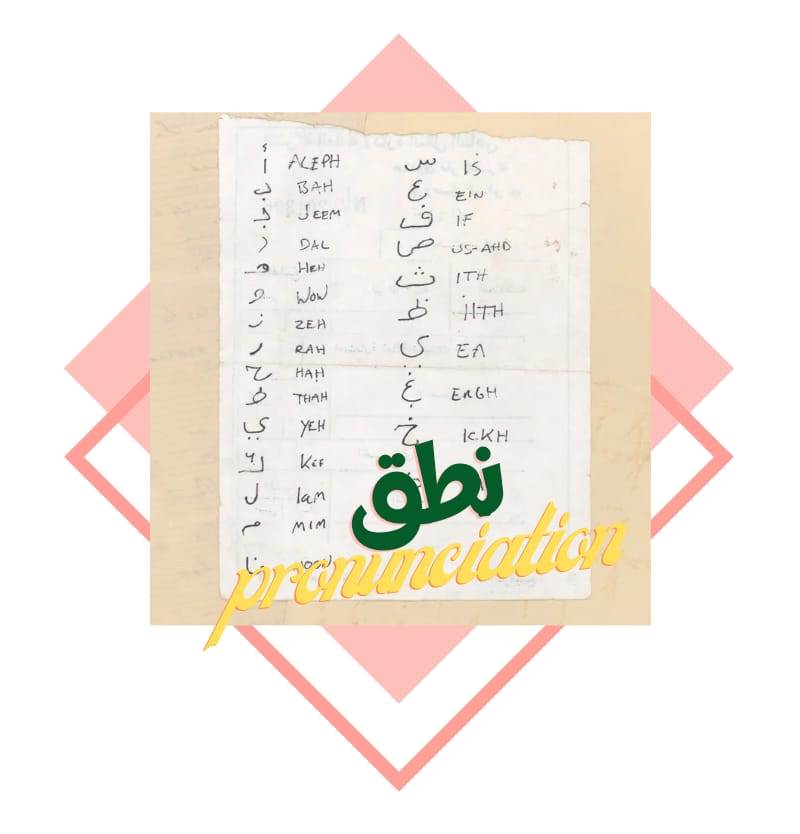 أ ALEPH
ب BAH
ج JEEM
د DAL
ه HEH
و WOW
ز ZEH
ر RAH
ح HAH
ط THAH
ي YEH
ك KEF
ل lam
م MIM
ن
س IS
ع EIN
ف IF
ص US-AHD
ث ITH
ظ
ي EA
غ ERGH
خ ICKH
نطق
pronunciation